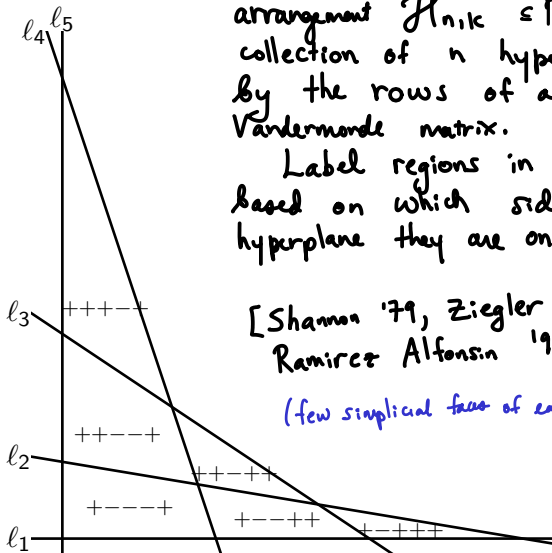 ℓ4 ℓ5
arrangement ℋn,k
collection of n
by the rows of a
Vandermonde matrix.
Label regions in
based on which
hyperplane they are on
[Shannon '79, Ziegler
Ramirez Alfonsin
(few simplicial faces of
ℓ3
+++−−
++−−−
ℓ2
++−++
+−−−+
+−−++
+−+++
ℓ1